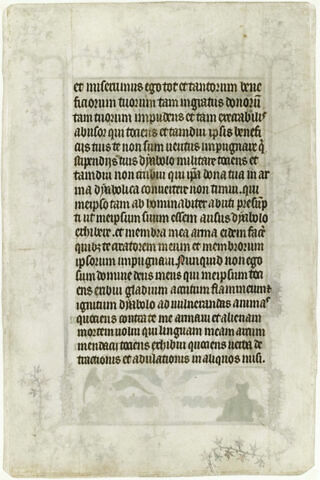 et miserrimus ego tot et tantorum bene
ficiorum tuorum tam ingratus donorū
tam tuorum impudens et tam execrabilis
abusor qui tociens et tamdiu ipsis benefi
ciis tuis te non sum veritus impugnare
stipendijs tuis dyabolo militare tociens et
tamdiu non timui dona tua in ar
ma dyabolica convertere non timui. qui
meipso tam abhominabiliter abuti presūp
ut meipsum suum essem ausus dyabolo
exhibere. et membra mea arma eidem face
te creatorem meum et membrorum
ipsorum impugnavi. Nunquid non ego
sum domine deus meus qui meipsum toci
ens exhibui gladium acutum flammeum
ignitum dyabolo ad vulnerandas animas
quociens contra te me armavi et alienam
mortem volui qui linguam meam arcum
mendacij tociens exhibui quociens verba de
tractionis et adulationis in aliquos misi.